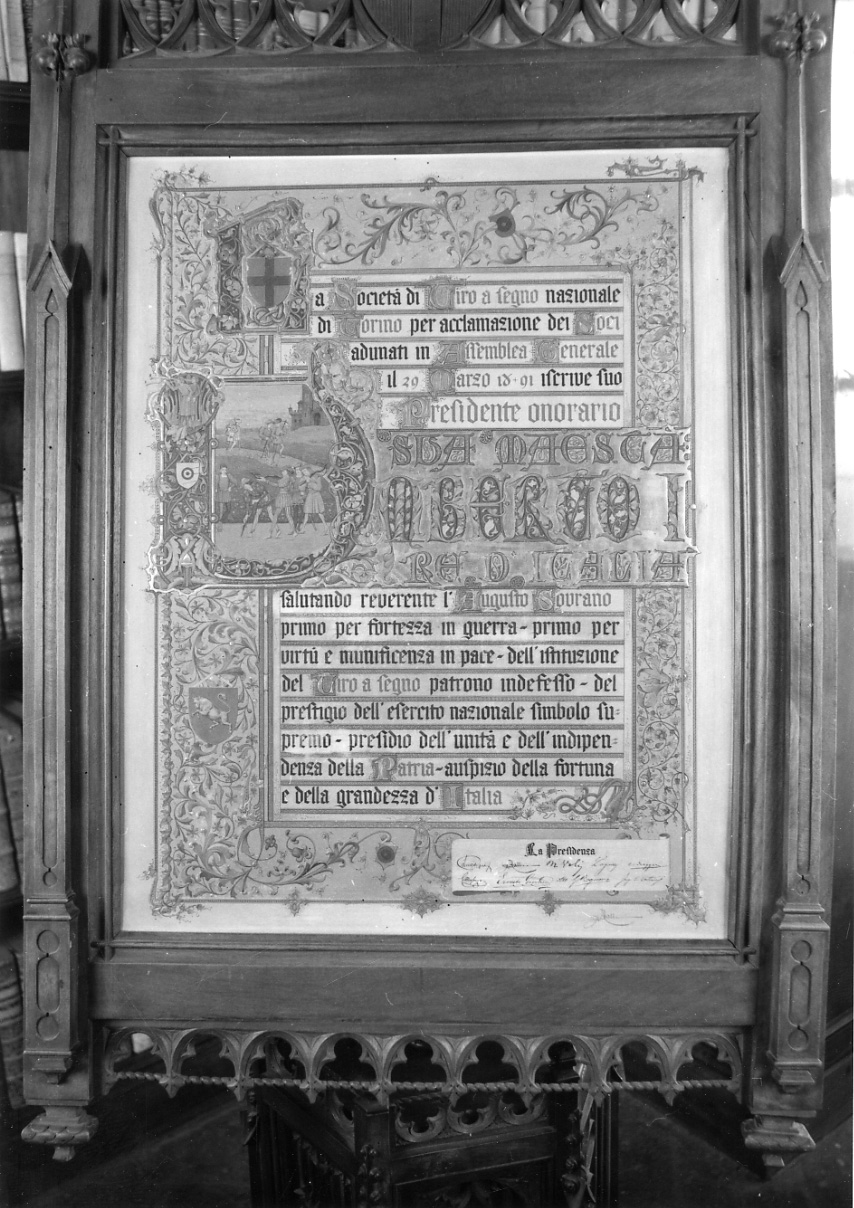 La Società di Tiro a segno nazionale
di Torino per acclamazione dei Soci
adunati in Assemblea Generale
il 29 Marzo 18·91 iscrive suo
Presidente onorario
SUA MAESTA
UMBERTO I
RE D'ITALIA
salutando reverente l'Augusto Sovrano
primo per fortezza in guerra - primo per
virtù e munificenza in pace - dell'istituzione
del Tiro a segno patrono indefesso - del
prestigio dell'esercito nazionale simbolo su=
premo - presidio dell'unità e dell'indipen=
denza della Patria - auspizio della fortuna
e della grandezza d'Italia
La Presidenza